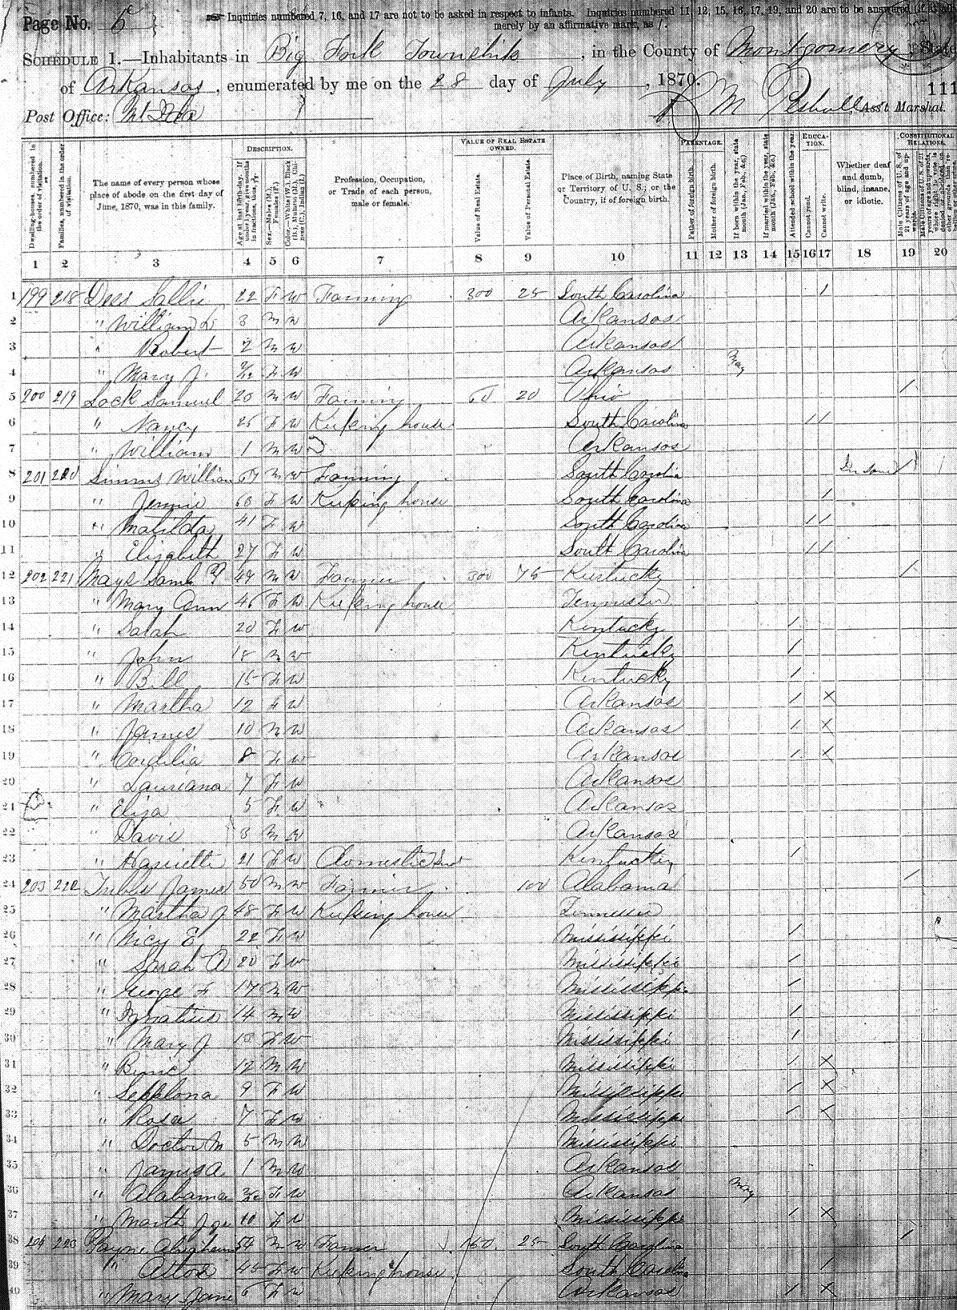 Page No. 6
Inquiries numbered 7, 16, and 17 are not to be asked in respect to infants. Inquiries numbered 11, 12, 15, 16, 17, 19, and 20 are to be answered (if at all)
merely by an affirmative mark, as /.
SCHEDULE 1.—Inhabitants in Big Fork Township, in the County of Montgomery, State
of Arkansas, enumerated by me on the 28 day of July, 1870.
111
Post Office: Mt Ida
M Ass't Marshal.
Dwelling-houses, numbered in the order of visitation.
Families, numbered in the order of visitation.
The name of every person whose place of abode on the first day of June, 1870, was in this family.
DESCRIPTION.
Age at last birth-day. If under 1 year, give months in fractions, thus, 3/12
Sex.—Males (M.), Females (F.)
Color.—White (W.), Black (B.), Mulatto (M.), Chinese (C.), Indian (I.)
Profession, Occupation, or Trade of each person, male or female.
VALUE OF REAL ESTATE OWNED.
Value of Real Estate.
Value of Personal Estate.
Place of Birth, naming State or Territory of U. S.; or the Country, if of foreign birth.
PARENTAGE.
Father of foreign birth.
Mother of foreign birth.
If born within the year, state month (Jan., Feb., &c.)
If married within the year, state month (Jan., Feb., &c.)
Attended school within the year.
EDUCATION.
Cannot read.
Cannot write.
Whether deaf and dumb, blind, insane, or idiotic.
CONSTITUTIONAL RELATIONS.
1 2 3 4 5 6 7 8 9 10 11 12 13 14 15 16 17 18 19 20
1 199 218 Dees Sallie 22 F W Farming 300 25 South Carolina /
2 " William L 3 M W Arkansas
3 " Robert 2 M W Arkansas
4 " Mary J. F W Arkansas May
5 200 219 Lock Samuel 23 M W Farming 60 20 Ohio /
6 " Nancy 25 F W Keeping house South Carolina / /
7 " William 1 M W Arkansas
8 201 220 Simms William 67 M W Farming South Carolina Insane /
9 " Jennie 63 F W Keeping house South Carolina /
10 " Matilda 41 F W South Carolina / /
11 " Elizabeth 27 F W South Carolina / /
12 202 221 Mays Saml 49 M W Farmer 300 75 Kentucky /
13 " Mary Ann 46 F W Keeping house Tennessee
14 " Sarah 20 F W Kentucky /
15 " John 18 M W Kentucky /
16 " Bill 15 F W Kentucky /
17 " Martha 12 F W Arkansas / X
18 " James 10 M W Arkansas / X
19 " Cordilia 8 F W Arkansas / X
20 " Lausiana 7 F W Arkansas
21 " Eliza 5 F W Arkansas
22 " Davie 3 M W Arkansas
23 " Harriette 21 F W Domestic Kentucky /
24 203 222 James 50 M W Farmer 100 Alabama /
25 " Martha J 48 F W Keeping house Tennessee
26 " Nicy E. 22 F W Mississippi /
27 " Sarah A 20 F W Mississippi /
28 " George F 17 M W Mississippi /
29 " Ignatius 14 M W Mississippi /
30 " Mary J F W Mississippi /
31 " 12 M W Mississippi / X
32 " 9 F W Mississippi / X
33 " Rosa 7 F W Mississippi / X
34 " Doctor M 5 M W Mississippi
35 " James A 1 M W Arkansas
36 " Alabama F W Arkansas May
37 " 10 F W Mississippi / X
38 204 223 Payne 54 M W Farmer 150 25 South Carolina /
39 " 45 F W Keeping house South Carolina /
40 " Mary Jane 6 F W Arkansas / X